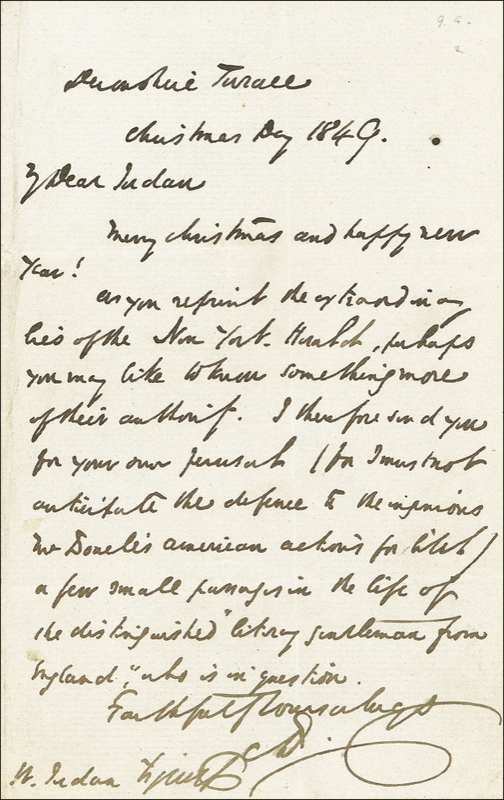 Devonshire Terrace
Christmas Day 1849.
My Dear Jerdan
Merry christmas and happy new
year!
As you reprint the extraordinary
lies of the New York Herald, perhaps
you may like to know something more
of their author. I therefore send you
for your own perusal (for I must not
anticipate the defence to the ingenious
Mr american actions for libel)
a few small passages in the life of
the distinguished "literary gentleman from
England", who is in question.
Faithfully Yours always
CD.
W. Jerdan Esquire